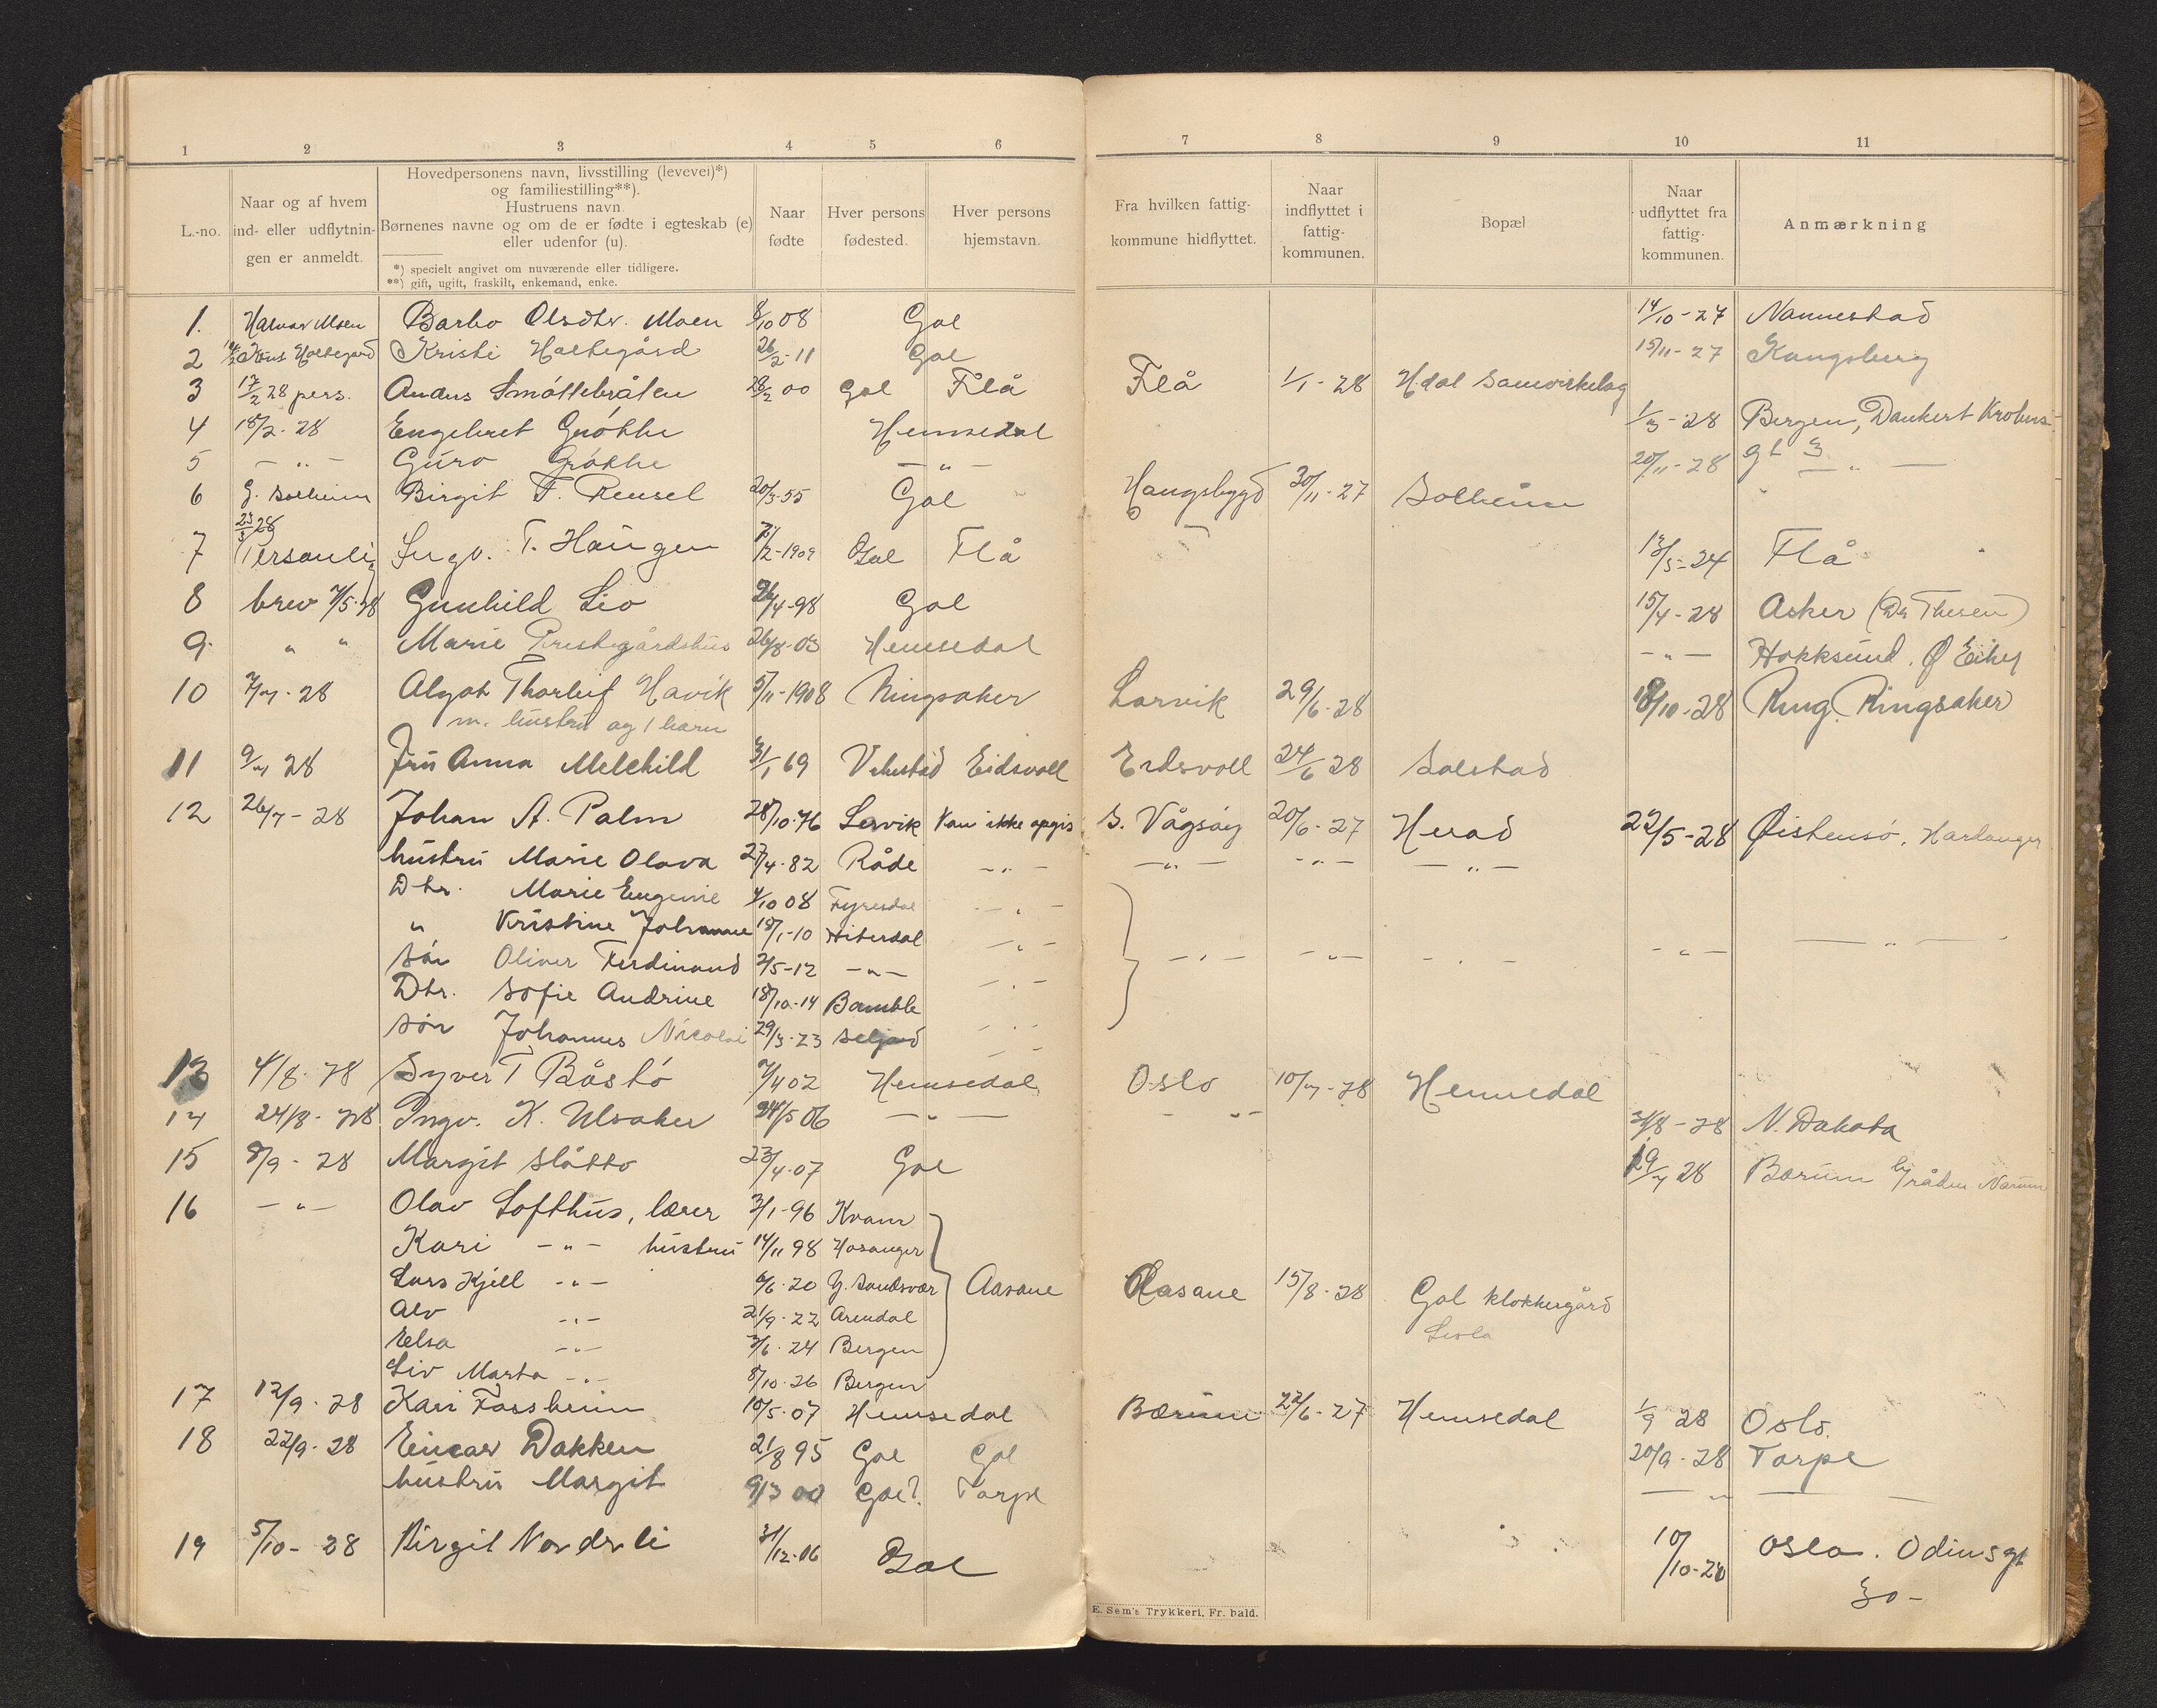 1 2 3 4 5 6 7 8 9 10 11
L.-no.
Naar og af hvem
ind- eller udflytnin-
gen er anmeldt.
Hovedpersonens navn, livsstilling (levevei)*)
og familiestilling**).
Hustruens navn.
Børnenes navne og om de er fødte i egteskab (e)
eller udenfor (u).
*) specielt angivet om nuværende eller tidligere.
**) gift, ugift, fraskilt, enkemand, enke.
Naar
fødte
Hver persons
fødested.
Hver persons
hjemstavn.
Fra hvilken fattig-
kommune hidflyttet.
Naar
indflyttet i
fattig-
kommunen.
Bopæl
Naar
udflyttet fra
fattig-
kommunen.
Anmærkning
1. Halvar Moen Barbo Olsdtr. Moen 8/10 08 Gol 14/10-27 Nannestad
2 Holtegård Kristi Holtegård 26/2-11 Gol 15/11-27 Kongsberg
3 17/2 28 pers. Anders Smøttebråten 28/2 00 Gol Flå Flå 1/1-28 H.dal Samvirkelag
4 18/2-28 Engebret Grøthe Hemsedal 1/3-28 Bergen, Dankert Krohns-
5 -„- Guro Grøthe -„- 20/11-28 gt 3 -„-
6 G. Solheim Birgit T. Rensel 20/3-55 Gol Haugsbygd 30/11-27 Solheim
23/3 28
7 Personlig Ingv. T. Haugen 7/2-1909 Gol Flå 13/5-24 Flå
8 brev 7/5-28 Gunhild Lio 24/4-98 Gol 15/4-28 Asker (Dr Thesen)
9. „ „ Marie Prestegårdshus 26/8-03 Hemsedal -„- Hokksund. Ø Eiker
10 7/7-28 Algot Thorleif Havik 5/11-1908 Ringsaker Larvik 29/6-28 18/10-28 Ring. Ringsaker
m. hustru og 1 barn
11 9/7 28 Fru Anna Melchild 31/1 69 Eidsvoll Eidsvoll 24/6 28 Solstad
12 26/7-28 Johan A. Palm 28/10-76 Lervik Kan ikke opgis S. Vågsøy 20/6-27 Herad 22/5-28 Øistensø, Hardanger
hustru Marie Olava 27/4-82 Råde -„- -„- -„- -„-
Dtr. Marie Eugenie 4/10 08 Fyresdal -„-
„ Kristine Johanne 18/1-10 Hiterdal -„-
Søn Oliver Ferdinand 2/5-12 -„- -„- -„- -„- -„- -„-
Dtr. Sofie Andrine 18/10-14 Bamble -„-
Søn Johannes Nicolai 29/3-23 Seljord -„-
13 4/8-28 Syver T Båstø 7/4 02 Hemsedal Oslo 10/7-28 Hemsedal
14 24/8-28 Ingv. K. Ulsaker 24/5 06 -„- -„- 31/8-28 N. Dakota
15 8/9-28 Margit Slåtto 23/4-07 Gol 19/7 28 Bærum
16 -„- Olav Lofthus, lærer 3/1-96 Kvam
Kari -„- hustru 14/11 98 Hosanger
Lars Kjell -„- 6/6-20 Y. Sandsvær Aasane Aasane 15/8-28 Gol klokkergård
Alv -„- 21/9-22 Arendal
Elsa -„- 3/6-24 Bergen
Liv Marta -„- 8/10-26 Bergen
17 12/9-28 Kari Fossheim 10/5-07 Hemsedal Bærum 22/6-27 Hemsedal 1/9 28 Oslo.
18 22/9-28 Einar Dokken 21/8 95 Gol Gol 20/9-28 Torpe
hustru Margit 9/3 00 Gol? Torpe -„-
19 5/10-28 Birgit Norderli 31/12-06 Gol 10/10-28 Oslo. Odinsgt
30-
E. Sem's Trykkeri, Fr. hald.